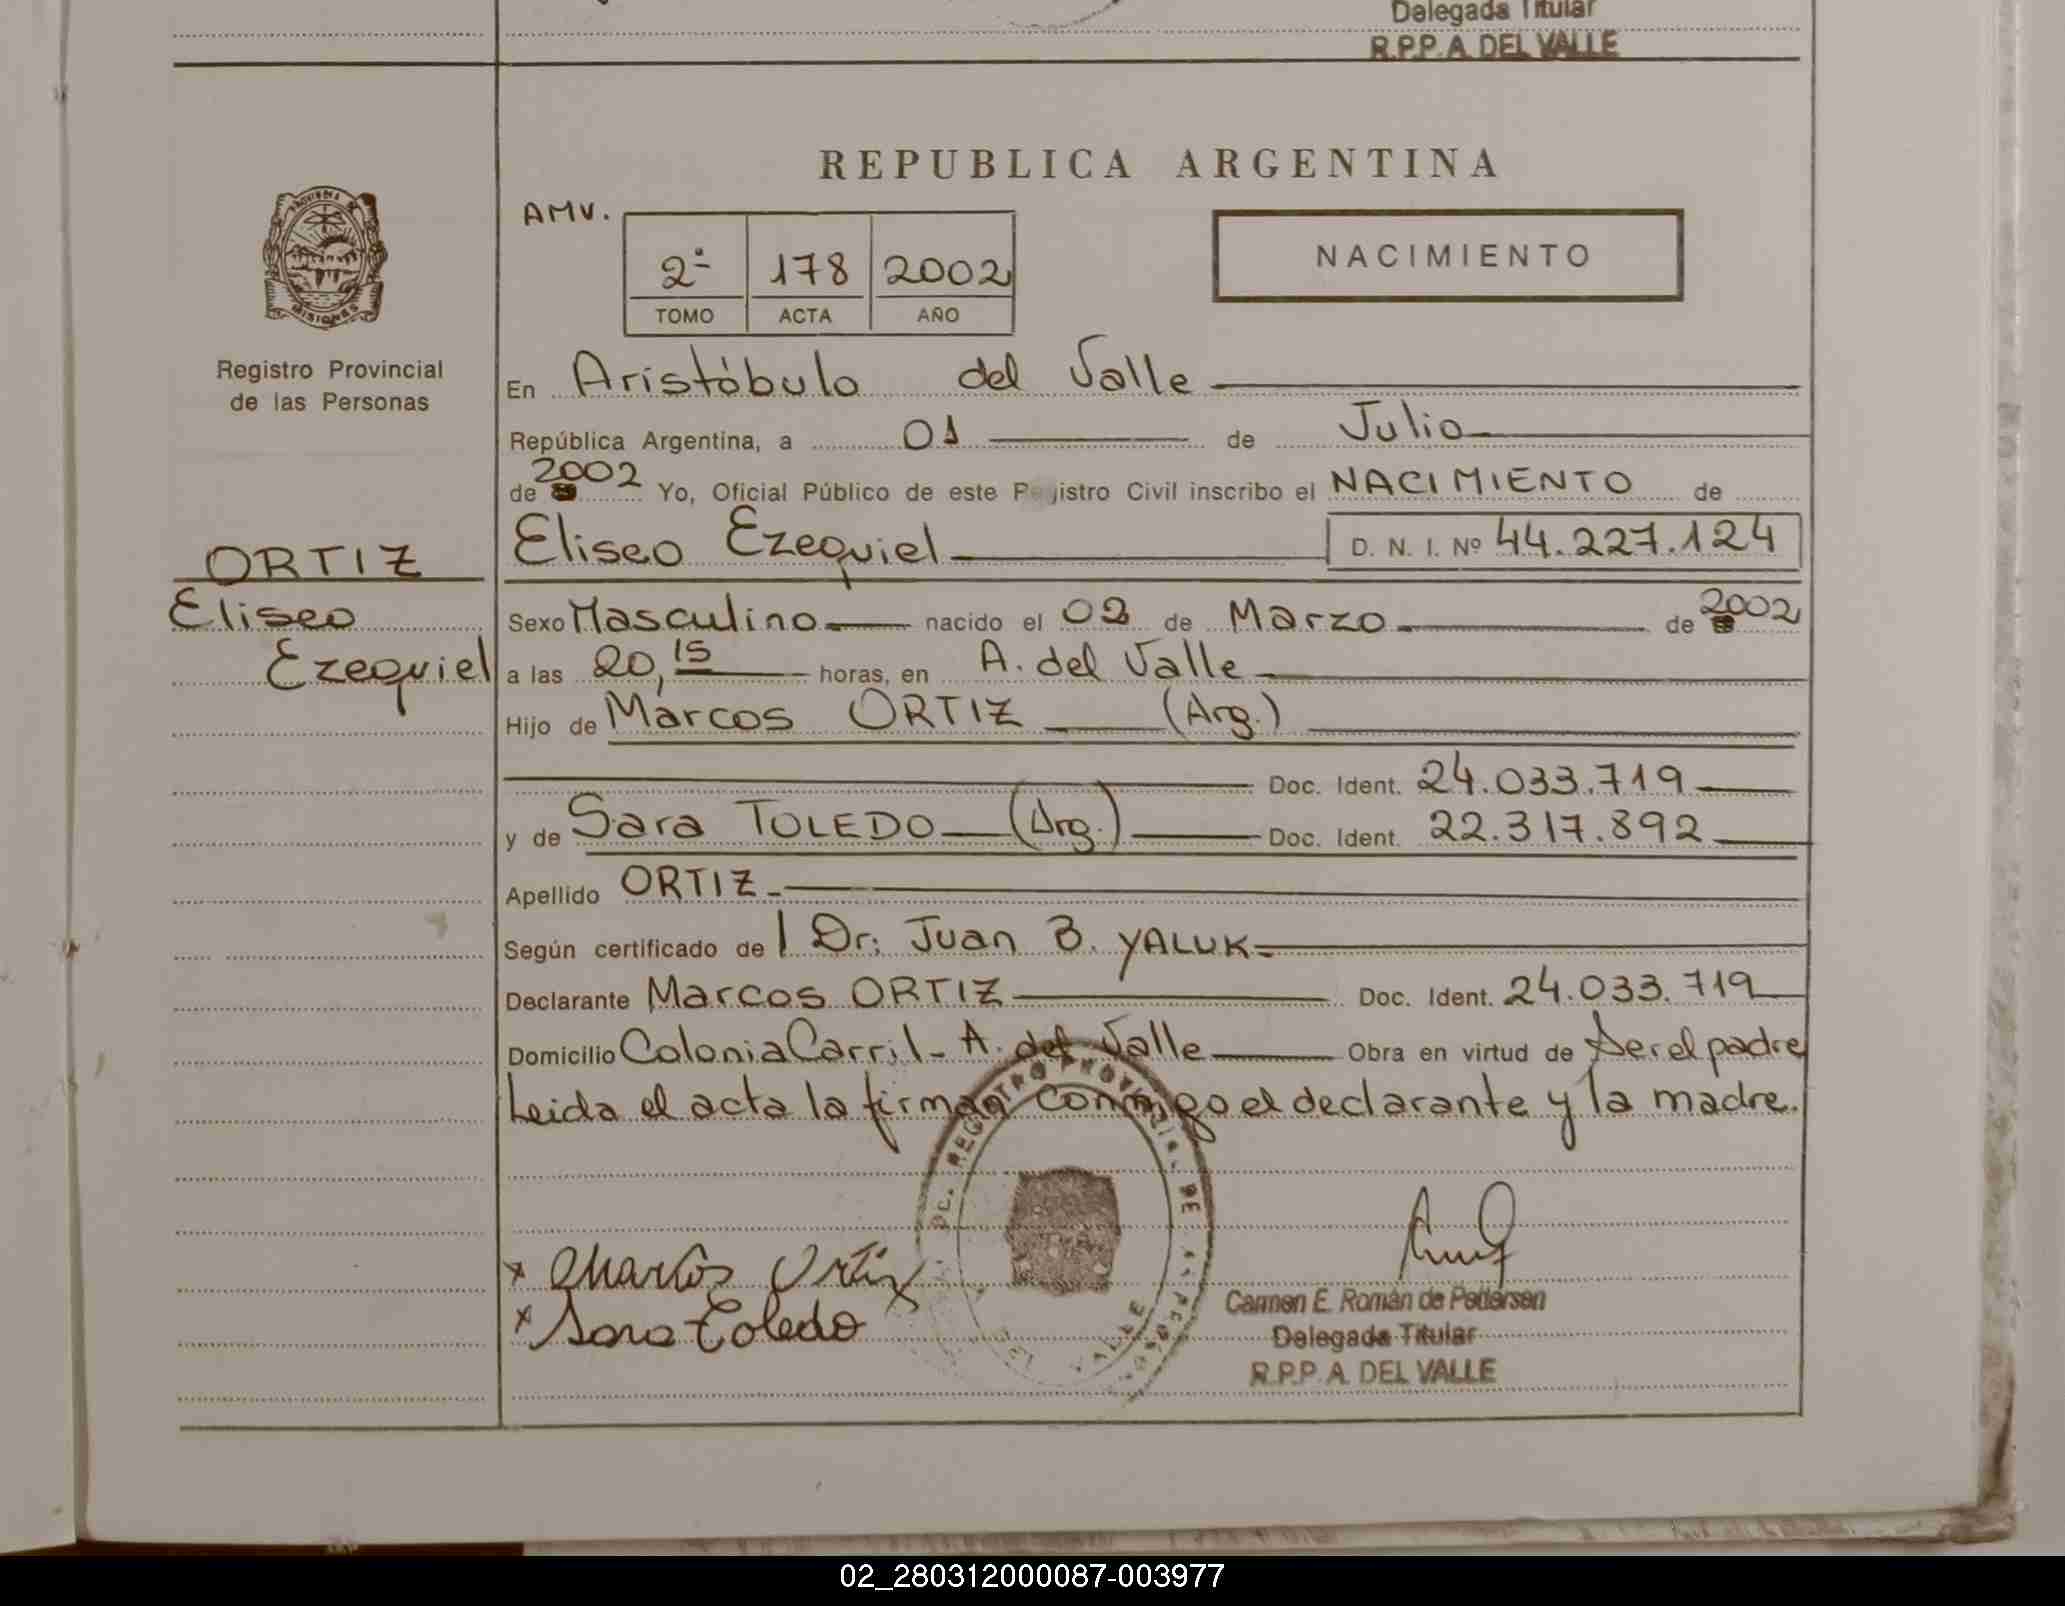 Delegada Titular
R.P.P. A. DEL VALLE
REPUBLICA ARGENTINA
AMV.
2º 178 2002
TOMO ACTA AÑO
NACIMIENTO
MISIONES
Registro Provincial
de las Personas
En Aristóbulo del Valle
República Argentina, a 01 de Julio
de 2002 Yo, Oficial Público de este Registro Civil inscribo el NACIMIENTO de
Eliseo Ezequiel D. N. I. Nº 44.227.124
ORTIZ
Eliseo
Ezequiel
Sexo Masculino nacido el 02 de Marzo de 2002
a las 20,15 horas, en A. del Valle
Hijo de Marcos ORTIZ (Arg.)
Doc. Ident. 24.033.719
y de Sara TOLEDO (Arg.) Doc. Ident. 22.317.892
Apellido ORTIZ
Según certificado de l Dr: Juan B. YALUK
Declarante Marcos ORTIZ Doc. Ident. 24.033.719
Domicilio Colonia Carril - A. del Valle Obra en virtud de Ser el padre
Leida el acta la firman conmigo el declarante y la madre.
REGISTRO PROVINCIAL DE
VALLE
x Marcos Ortiz
x Sara Toledo
Carmen E. Román de Pedersen
Delegada Titular
R.P.P. A. DEL VALLE
02_280312000087-003977